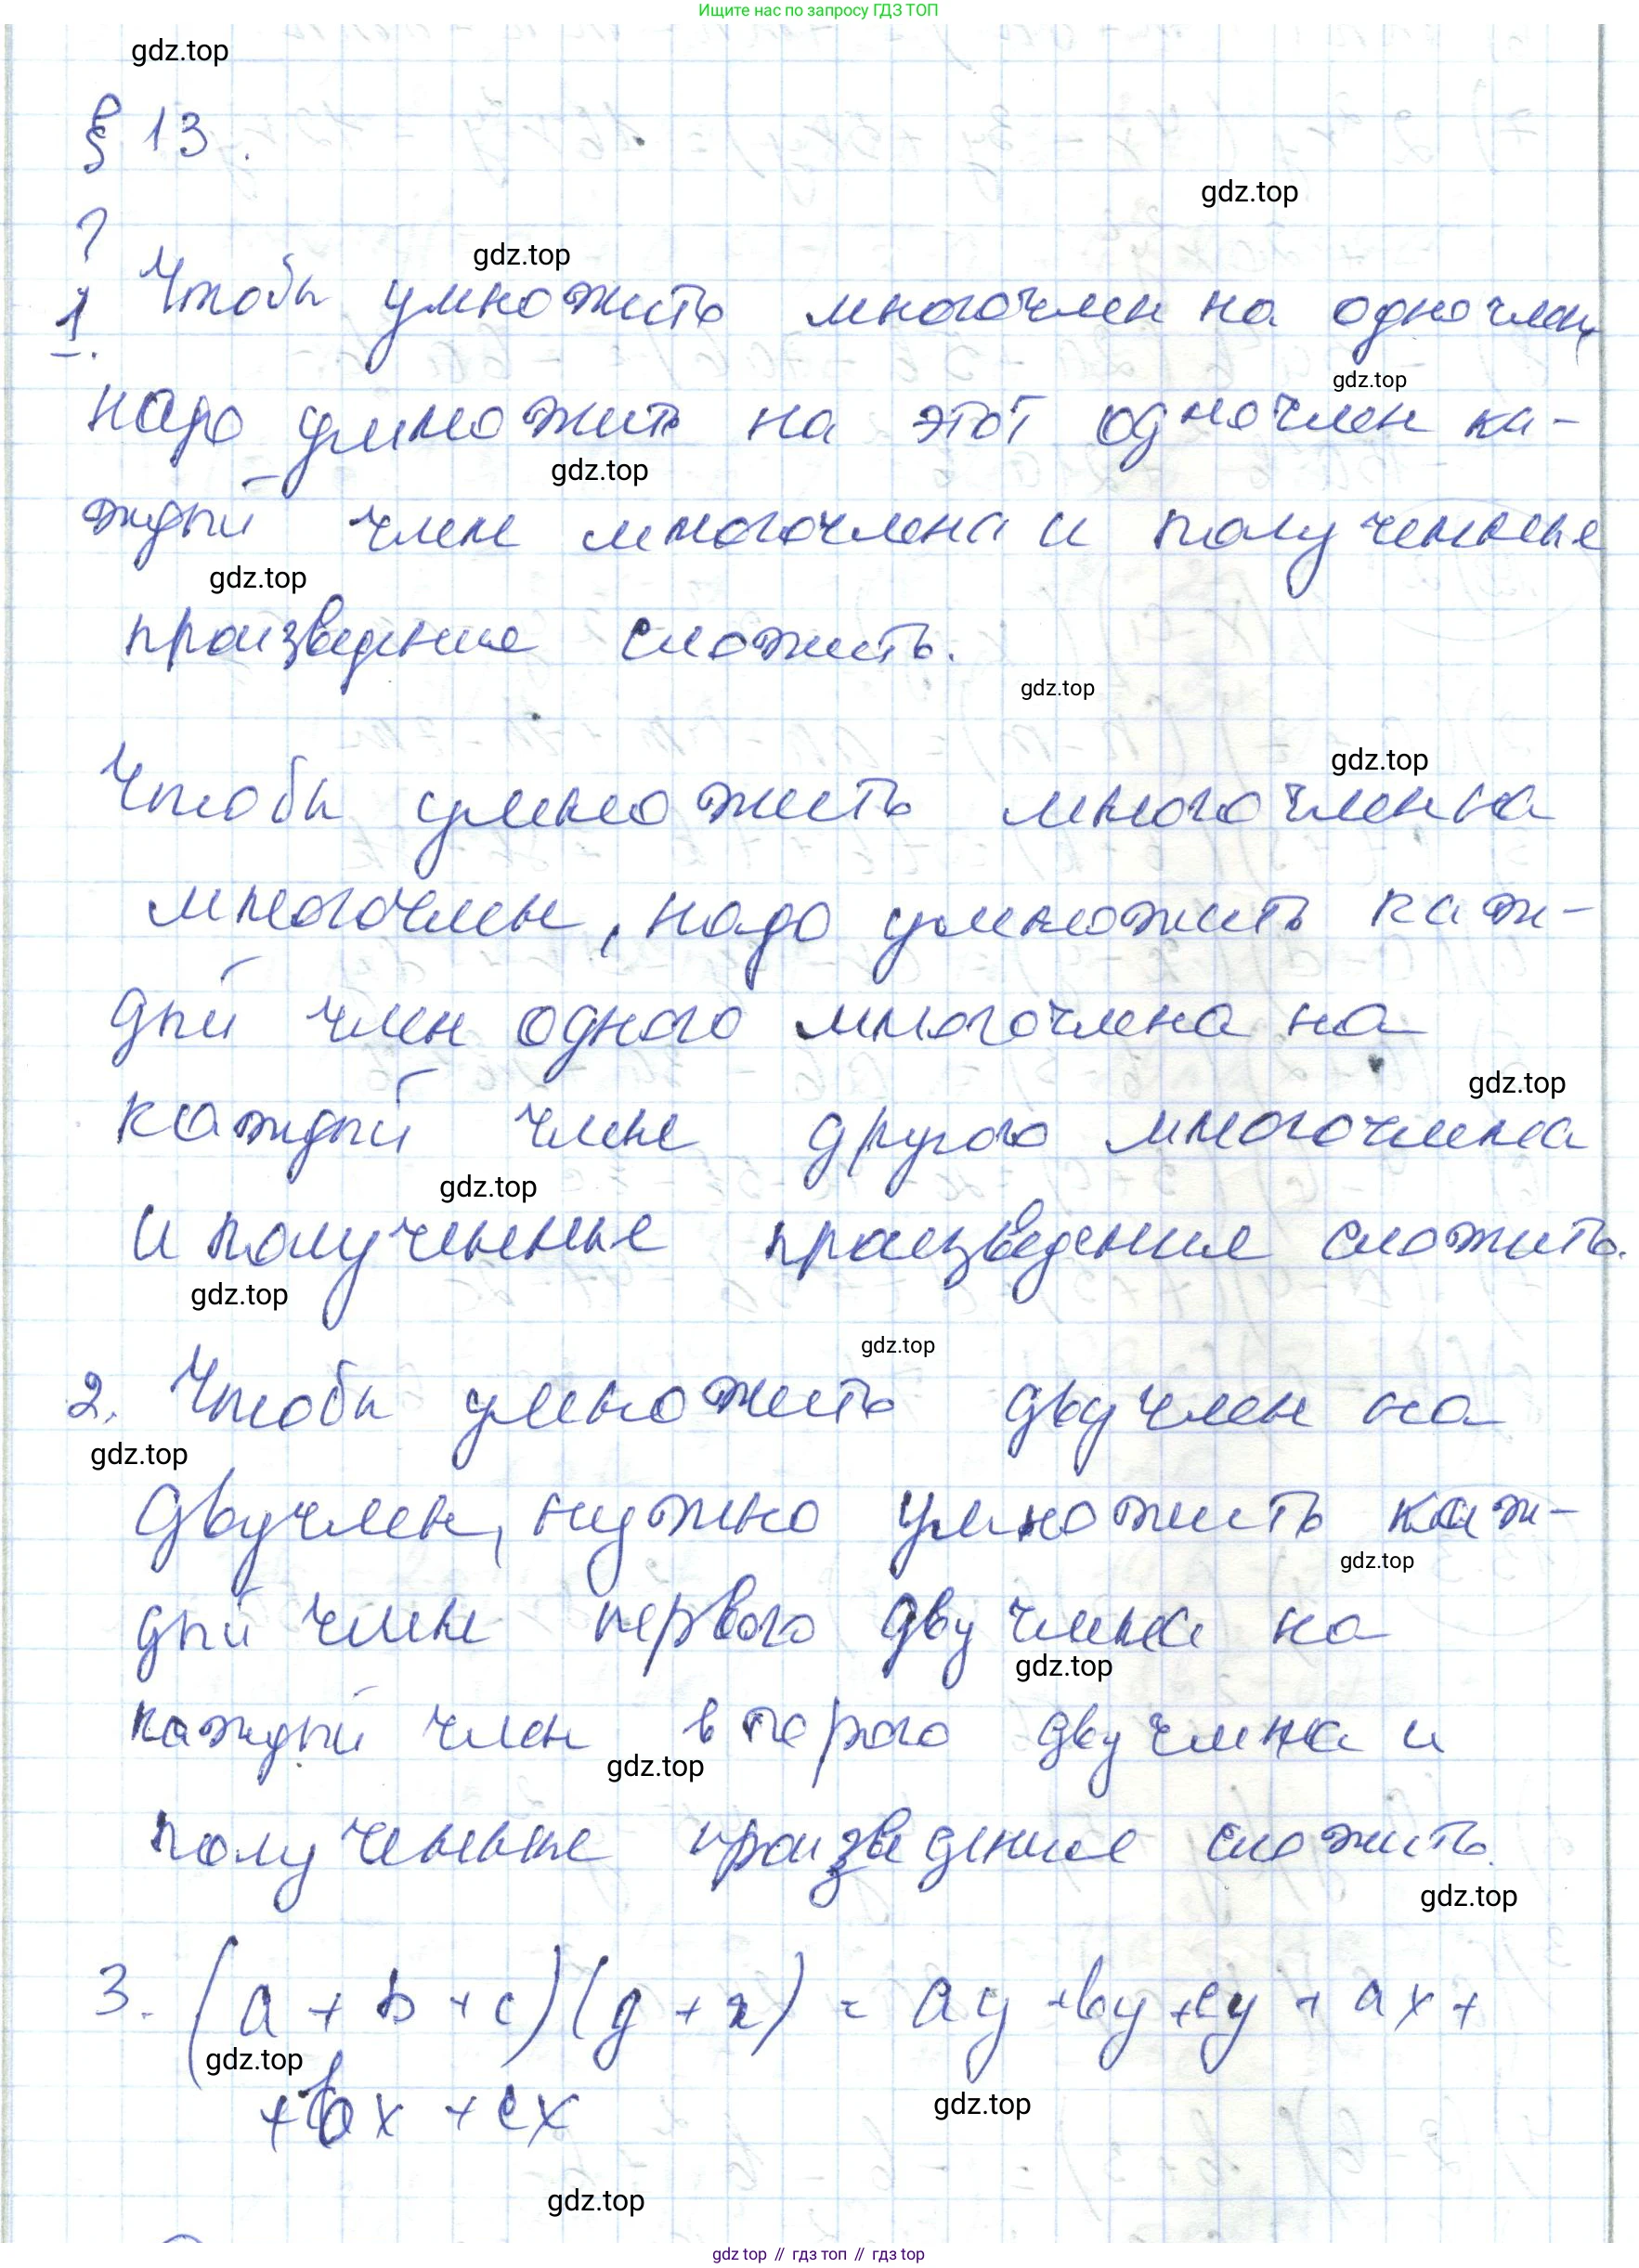 Ищите нас по запросу ГДЗ ТОП
gdz.top
§ 13.
gdz.top
?
gdz.top
1. Чтобы умножить многочлен на одночлен,
gdz.top
надо умножить на этот одночлен ка-
gdz.top
ждый член многочлена и полученные
gdz.top
произведение сложить.
gdz.top
gdz.top
Чтобы умножить многочлен на
многочлен, надо умножить каж-
дый член одного многочлена на
gdz.top
каждый член другого многочлена
gdz.top
и полученные произведения сложить.
gdz.top
gdz.top
2. Чтобы умножить двучлен на
gdz.top
двучлен, нужно умножить каж-
gdz.top
дый член первого двучлена на
gdz.top
каждый член второго двучлена и
gdz.top
полученные произведение сложить.
gdz.top
3. (a + b + c)(y + x) = ay + by + cy + ax +
gdz.top
+ bx + cx
gdz.top
gdz.top
gdz top // гдз топ // гдз top